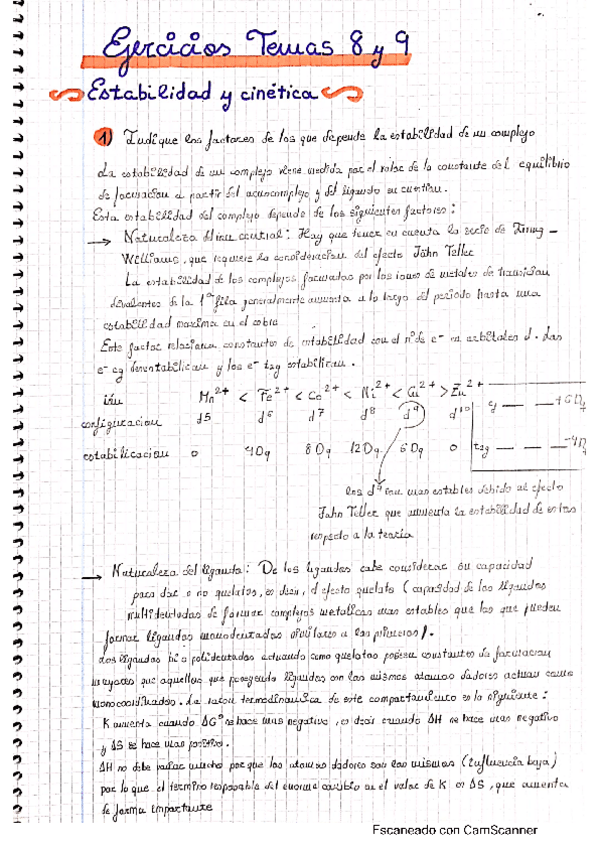 Ejercicios Temas 8 y 9
Estabilidad y cinética
1) Indique los factores de los que depende la estabilidad de un complejo
La estabilidad de un complejo viene medida por el valor de la constante del equilibrio
de formacion a partir del acuocomplejo y del ligando en cuestion.
Esta estabilidad del complejo depende de los siguientes factores:
→ Naturaleza del ion central: Hay que tener en cuenta la serie de Irving -
Williams, que requiere la consideracion del efecto Jahn Teller
La estabilidad de los complejos formados por los iones de metales de transicion
divalentes de la 1ª fila generalmente aumenta a lo largo del periodo hasta una
estabilidad maxima en el cobre
Este factor relaciona constantes de estabilidad con el nº de e- en orbitales d. Los
e- eg desestabilizan y los e- t2g estabilizan.
ion Mn2+ < Fe2+ < Co2+ < Ni2+ < Cu2+ > Zn2+
configuracion d5 d6 d7 d8 d9 d10
eg +6Dq
estabilizacion 0 4Dq 8Dq 12Dq 6Dq 0
t2g -4Dq
los d9 son mas estables debido al efecto
Jahn Teller que aumenta la estabilidad de estos
respecto a la teoria
→ Naturaleza del ligando: De los ligandos cabe considerar su capacidad
para dar o no quelatos, es decir, el efecto quelato (capacidad de los ligandos
multidentados de formar complejos metalicos mas estables que los que pueden
formar ligandos monodentados similares a los primeros).
Los ligandos bi o polidentados actuando como quelatos poseen constantes de formacion
mayores que aquellos que poseyendo ligandos con los mismos atomos dadores actuan como
monocoordinados. La razon termodinamica de este comportamiento es la siguiente:
K aumenta cuando ΔG° se hace mas negativo, es decir cuando ΔH se hace mas negativo
y ΔS se hace mas positivo.
ΔH no debe variar mucho porque los atomos dadores son los mismos (influencia baja)
por lo que el termino responsable del enorme cambio en el valor de K es ΔS, que aumenta
de forma importante
Escaneado con CamScanner